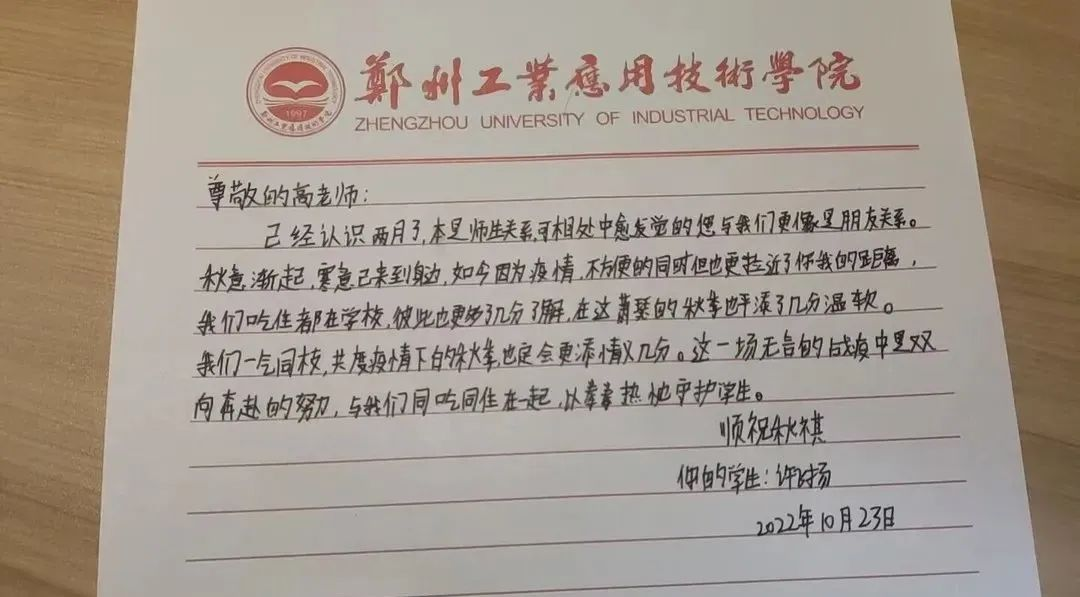 鄭州工業應用技術學院
ZHENGZHOU UNIVERSITY OF INDUSTRIAL TECHNOLOGY
1997
尊敬的高老师:
已经认识两月了,本是师生关系,可相处中愈发觉的您与我们更像是朋友关系。
秋意渐起,寒意已来到身边,如今因为疫情,不方便的同时但也更拉近了你我的距离,
我们吃住都在学校,彼此也更多了几分了解,在这萧瑟的秋季也平添了几分温软。
我们一气同枝,共度疫情下的秋季,也定会更添情义几分。这一场无言的战疫中是双
向奔赴的努力,与我们同吃同住在一起,以拳拳热忱守护学生。
顺祝秋祺
你的学生:许扬
2022年10月23日